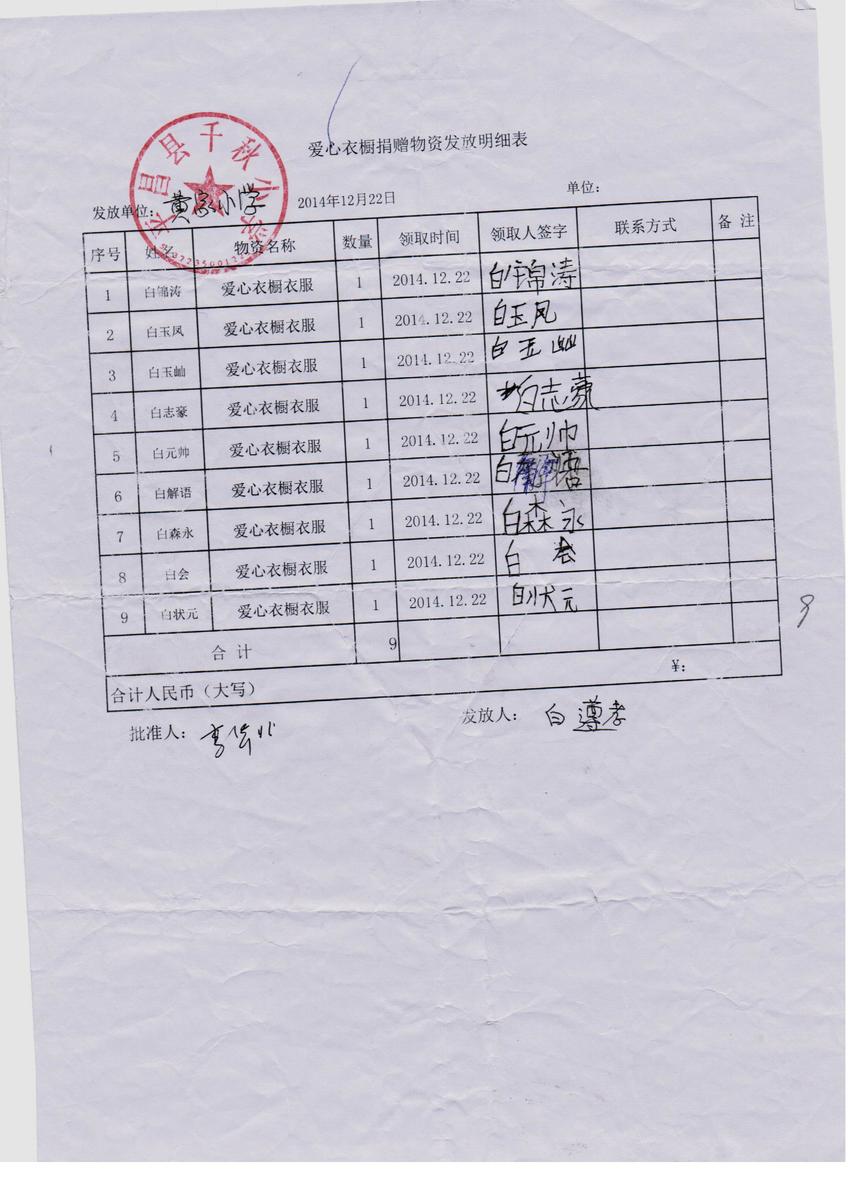 爱心衣橱捐赠物资发放明细表
永昌县千秋小学
发放单位：黄家小学 2014年12月22日 单位：
序号 姓名 物资名称 数量 领取时间 领取人签字 联系方式 备 注
1 白锦涛 爱心衣橱衣服 1 2014.12.22 白锦涛
2 白玉凤 爱心衣橱衣服 1 2014.12.22 白玉凤
3 白玉屾 爱心衣橱衣服 1 2014.12.22 白玉屾
4 白志豪 爱心衣橱衣服 1 2014.12.22 白志豪
5 白元帅 爱心衣橱衣服 1 2014.12.22 白元帅
6 白解语 爱心衣橱衣服 1 2014.12.22 白解语
7 白森永 爱心衣橱衣服 1 2014.12.22 白森永
8 白会 爱心衣橱衣服 1 2014.12.22 白会
9 白状元 爱心衣橱衣服 1 2014.12.22 白状元
9
合 计 9
合计人民币（大写） ¥：
批准人： 发放人：白遵孝